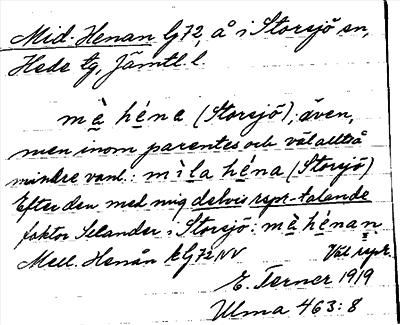 Mid-Henan G72, å i Storsjö sn,
Hede tg. Jämtl. l.
mè héna (Storsjö), även,
men inom parentes och väl alltså
mindre vanl.: mìla héna (Storsjö)
Efter den med mig delvis rspr-talande
faktor Selander i Storsjö: mè hénan
Mell. Henån kG72NV Väl rspr.
E. Terner 1919
Ulma 463:8